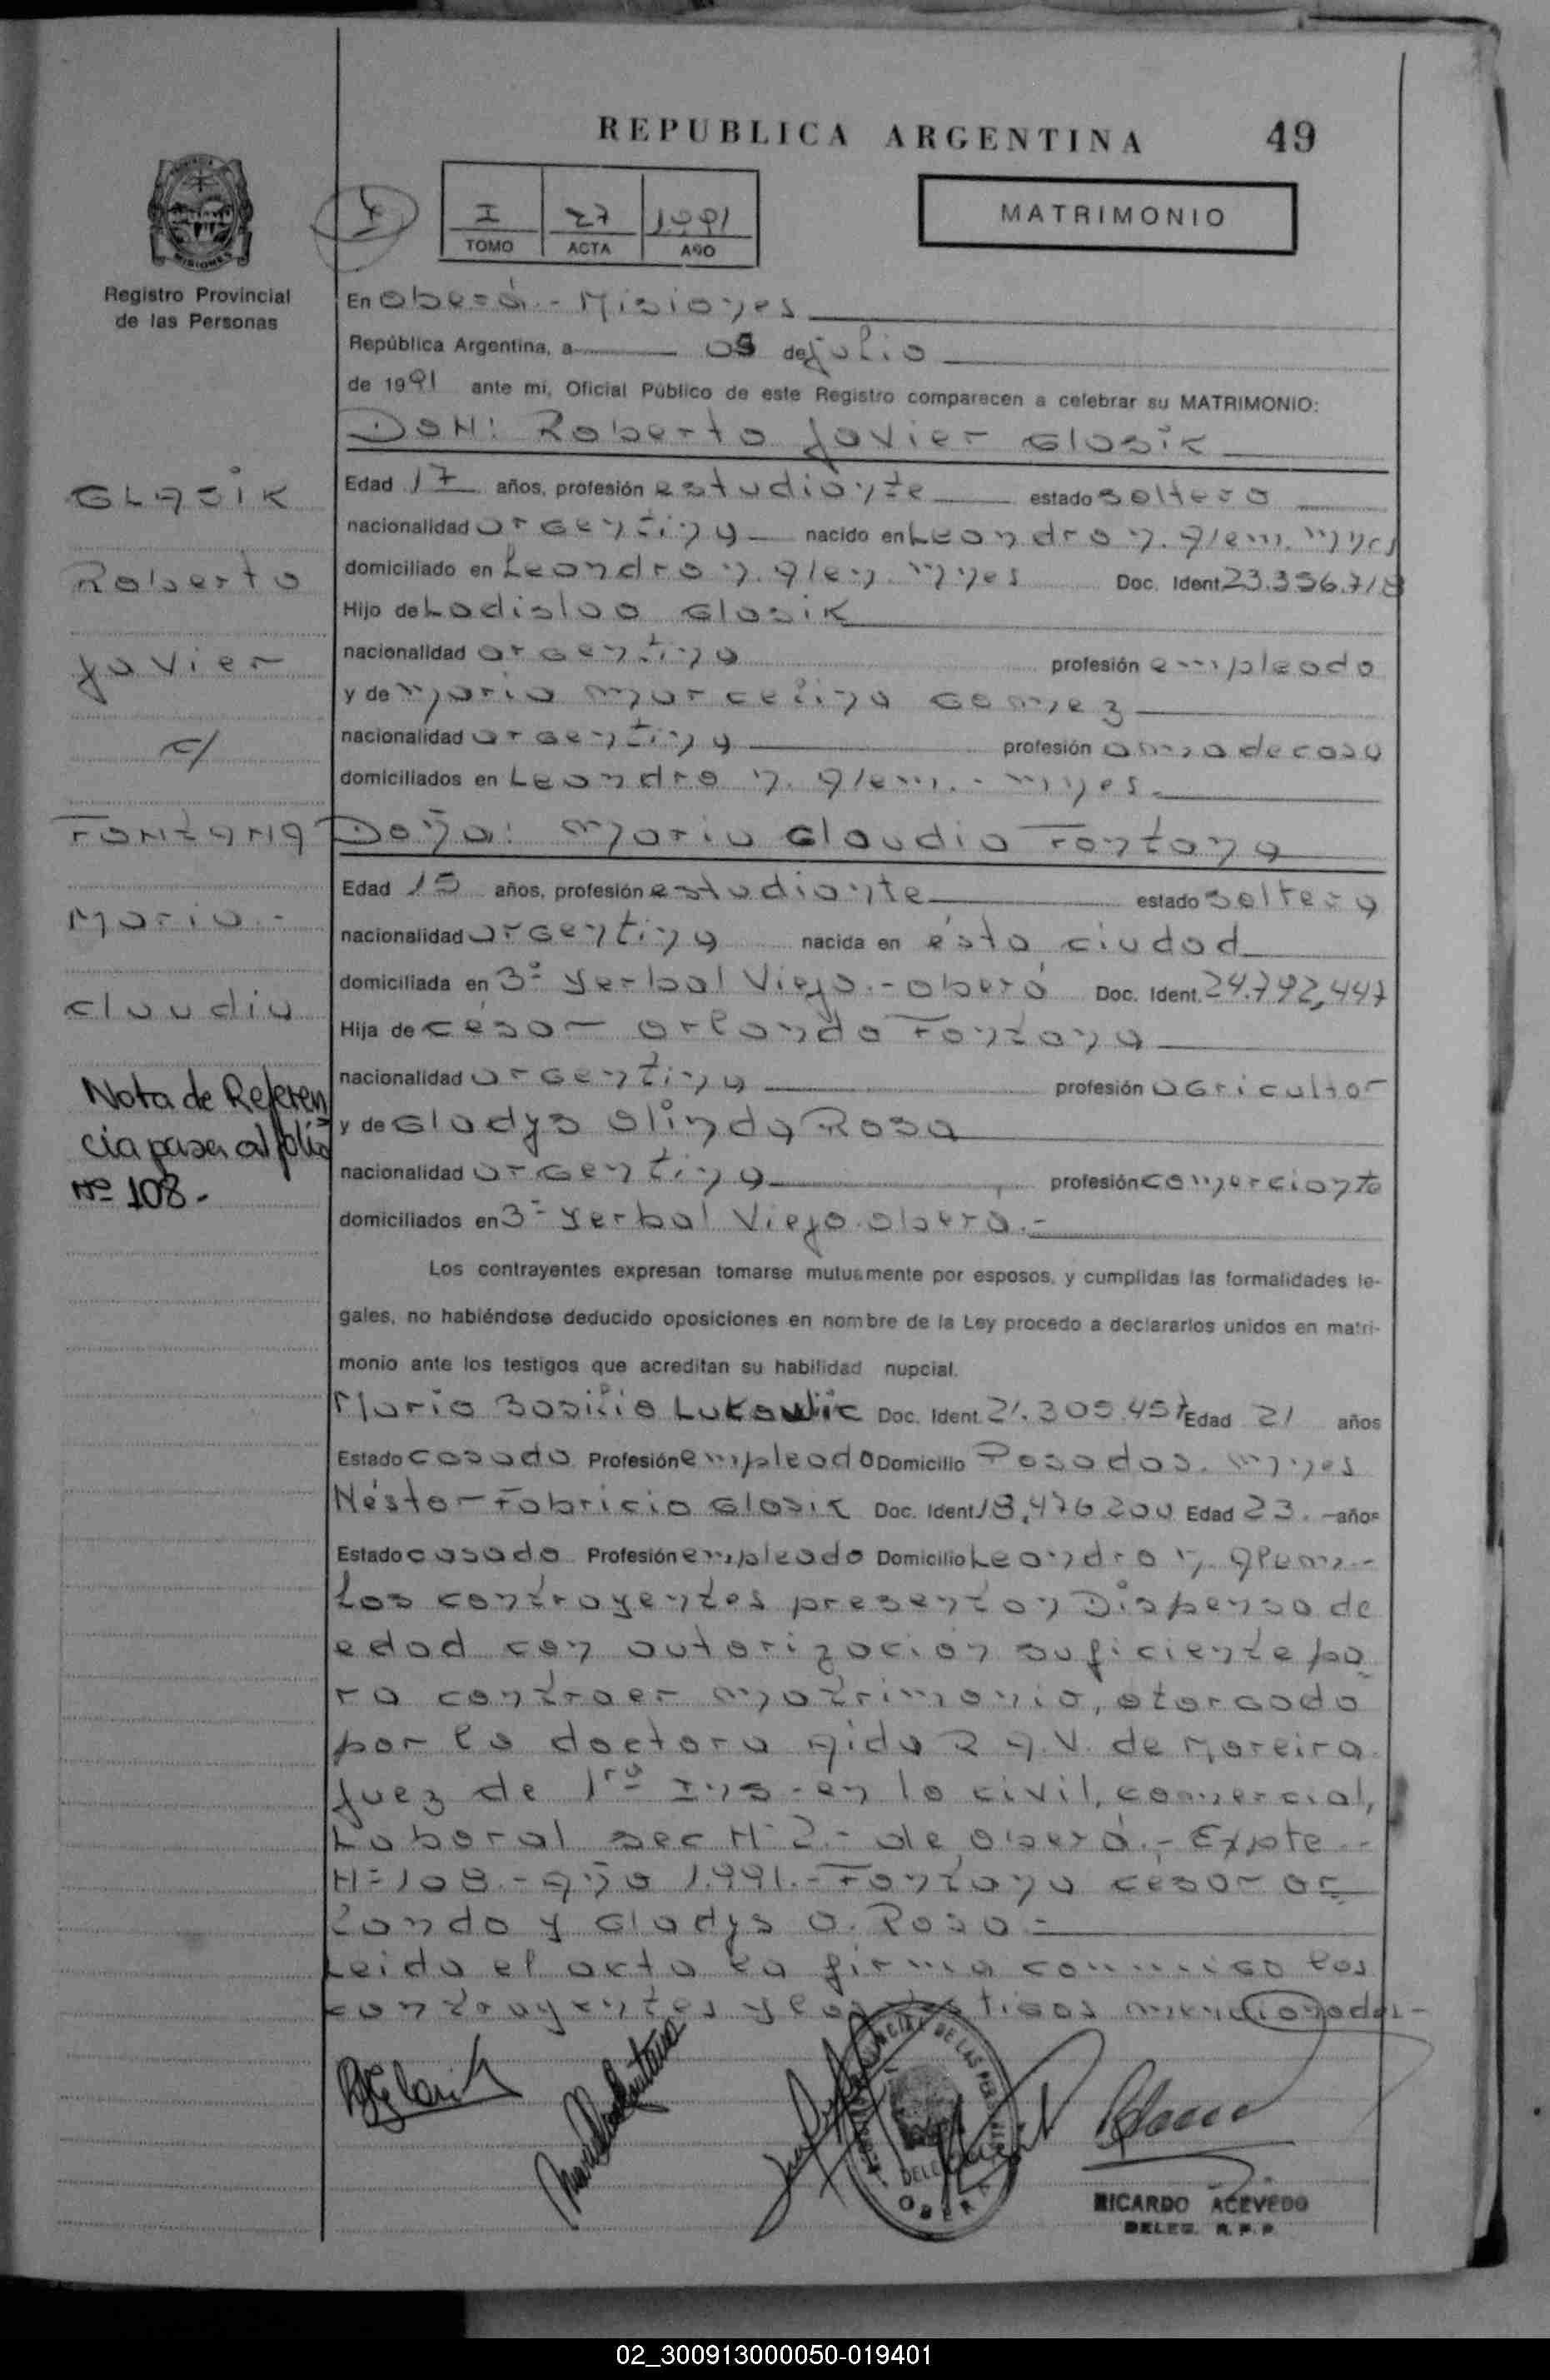 REPUBLICA ARGENTINA 49
I 27 1991
TOMO ACTA AÑO
MATRIMONIO
MISIONES
Registro Provincial
de las Personas
En Oberá - Misiones
República Argentina, a 05 de julio
de 1991 ante mí, Oficial Público de este Registro comparecen a celebrar su MATRIMONIO:
Don: Roberto Javier Glasik
Edad 17 años, profesión estudiante estado soltero
nacionalidad argentina nacido en Leandro N. Alem. Mnes
domiciliado en Leandro N. Alem. Mnes Doc. Ident. 23.356.718
Hijo de Ladislao Glasik
nacionalidad argentina profesión empleado
y de Maria Marcelina Gomez
nacionalidad argentina profesión ama de casa
domiciliados en Leandro N. Alem. - Mnes.
Doña: Maria Claudia Fontana
Edad 15 años, profesión estudiante estado soltera
nacionalidad argentina nacida en ésta ciudad
domiciliada en 3º Yerbal Viejo. - Oberá Doc. Ident. 24.792,447
Hija de César Orlando Fontana
nacionalidad argentina profesión agricultor
y de Gladys Olinda Rosa
nacionalidad argentina profesión comerciante
domiciliados en 3º Yerbal Viejo. Oberá.-
Los contrayentes expresan tomarse mutuamente por esposos, y cumplidas las formalidades le-
gales, no habiéndose deducido oposiciones en nombre de la Ley procedo a declararlos unidos en matri-
monio ante los testigos que acreditan su habilidad nupcial.
Mario Basilio Doc. Ident. 21.305.457 Edad 21 años
Estado casado Profesión empleado Domicilio Posadas. Mnes
Néstor Fabricio Glasik Doc. Ident. 18,476.200 Edad 23.- años
Estado casado Profesión empleado Domicilio Leandro N. Alem.-
Los contrayentes presentan Dispensa de
edad con autorización suficiente pa
ra contraer matrimonio, otorgado
por la doctora Aida R A. V. de Moreira
Juez de 1ra Ins - en lo civil, comercial,
Laboral sec Nº 2.- de Oberá.- Expte.-
Nº 108.- Año 1.991.- Fontana César Or
lando y Gladys O. Rosa -
Leida el acta la firma conmigo los
contrayentes y los testigos mencionados-
GLASIK
Roberto
Javier
c/
FONTANA
Maria.-
Claudia
Nota de Referen
cia pasa al folio
Nº 108.-
DE LAS PER
OBERA
RICARDO ACEVEDO
DELEG. R. P. P.
02_300913000050-019401